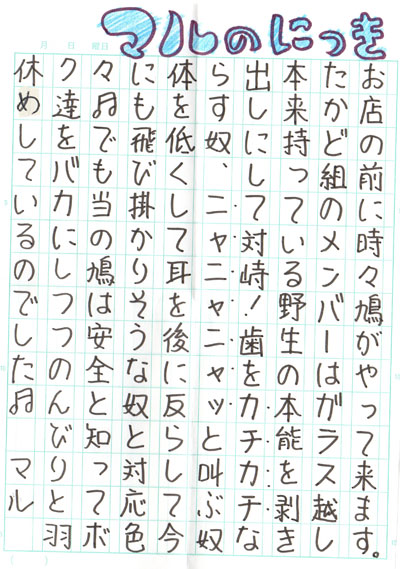 マルのにっき
月 日 曜日
お店の前に時々鳩がやって来ます。
たかど組のメンバーはガラス越し
本来持っている野生の本能を剥き
出しにして対峙！歯をカチカチな
らす奴、ニャニャニャッと叫ぶ奴
体を低くして耳を後に反らして今
にも飛び掛かりそうな奴と対応色
々♫でも当の鳩は安全と知ってボ
ク達をバカにしつつのんびりと羽
休めしているのでした♫　マル